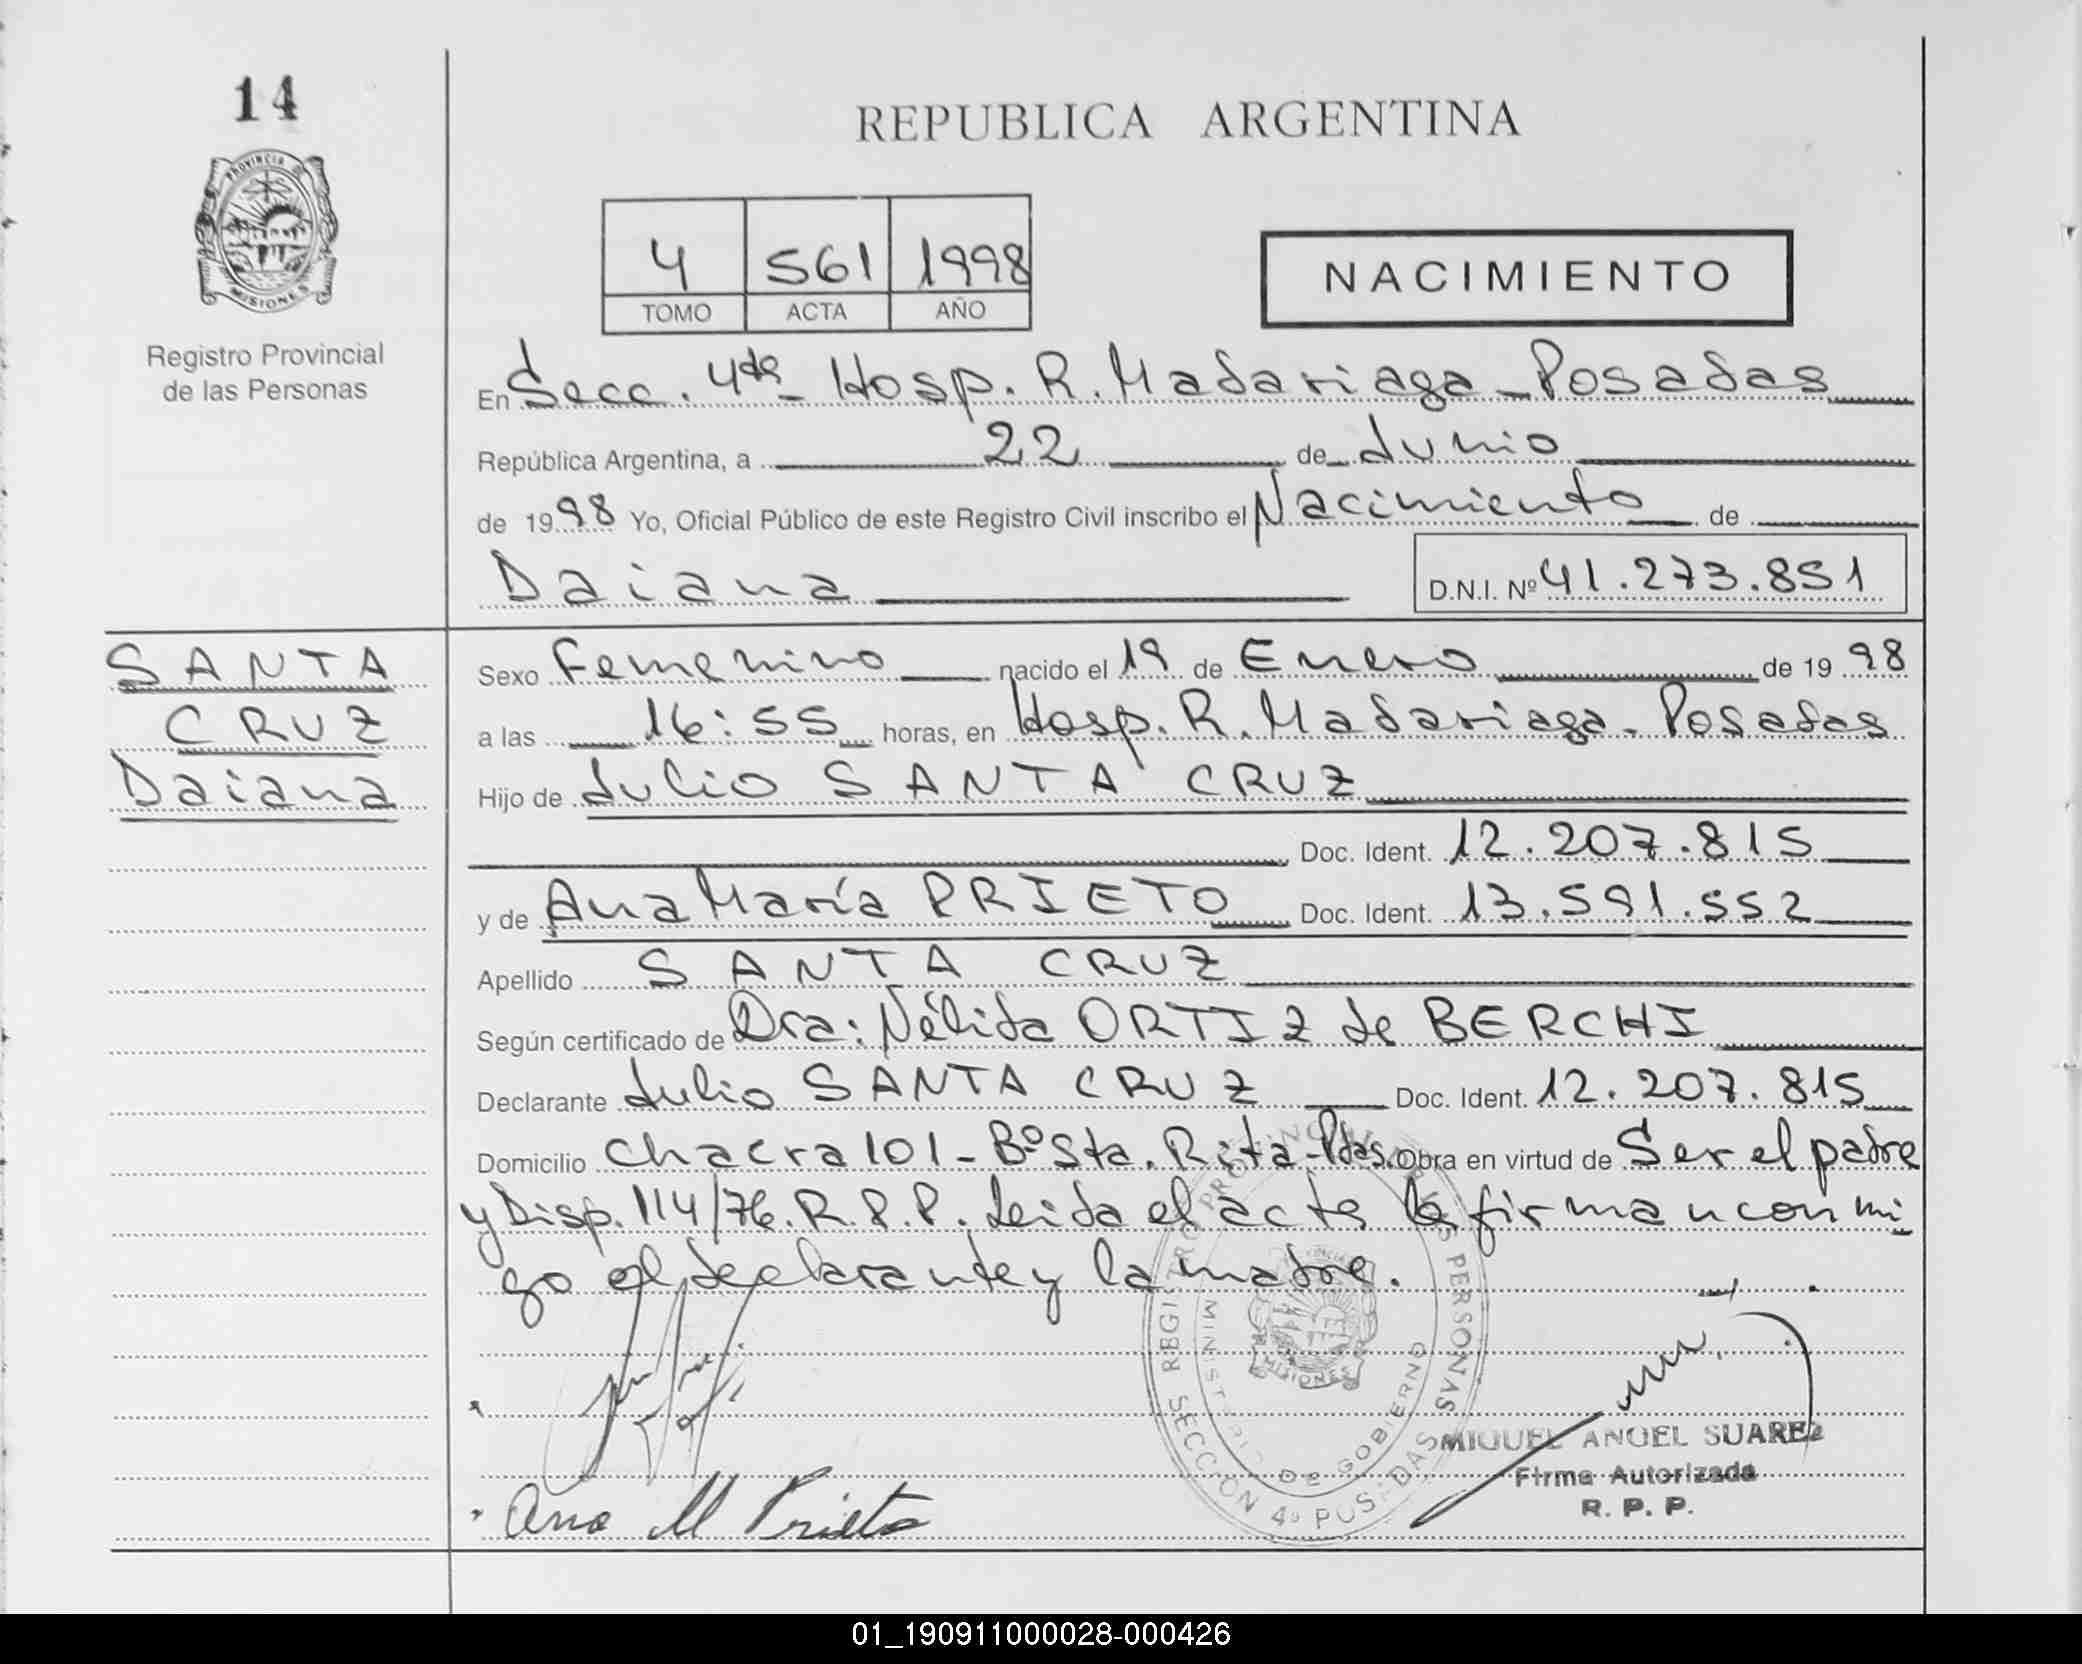 14
PROVINCIA DE
MISIONES
Registro Provincial
de las Personas
REPUBLICA ARGENTINA
4 561 1998
TOMO ACTA AÑO
NACIMIENTO
En Secc. 4ta - Hosp. R. Madariaga - Posadas
República Argentina, a 22 de Junio
de 1998 Yo, Oficial Público de este Registro Civil inscribo el Nacimiento de
Daiana
D.N.I. Nº 41.273.851
SANTA
CRUZ
Daiana
Sexo Femenino nacido el 19 de Enero de 1998
a las 16:55 horas, en Hosp. R. Madariaga - Posadas
Hijo de Julio SANTA CRUZ
Doc. Ident. 12.207.815
y de Ana María PRIETO Doc. Ident. 13.591.552
Apellido SANTA CRUZ
Según certificado de Dra: Nélida ORTIZ de BERCHI
Declarante Julio SANTA CRUZ Doc. Ident. 12.207.815
Domicilio Chacra 101 - Bº Sta. Rita - Pdas. Obra en virtud de Ser el padre
y Disp. 114/76. R.P.P. Leida el acta la firman conmi
go el declarante y la madre.
REGISTRO PROVINCIAL DE LAS PERSONAS
MINISTERIO DE GOBIERNO
MISIONES
SECCION 4ª POSADAS
MIGUEL ANGEL SUAREZ
Firma Autorizada
R. P. P.
Ana M Prieto
01_190911000028-000426